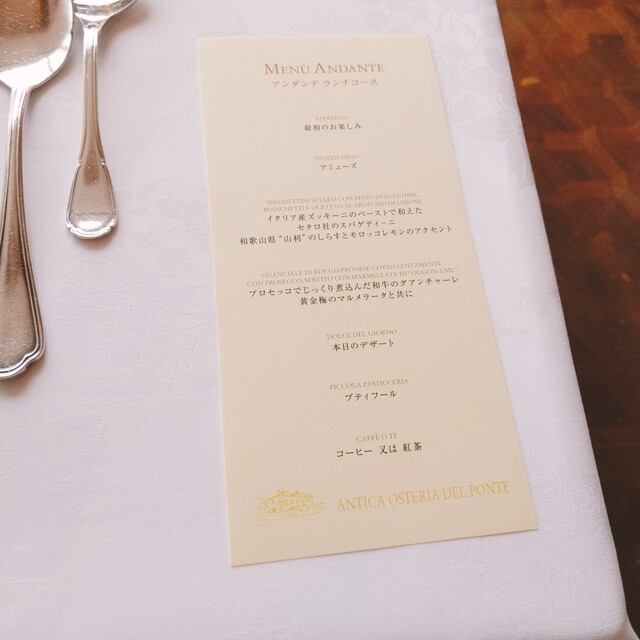 MENÙ ANDANTE
アンダンテ ランチコース
APERITIVO
最初のお楽しみ
STUZZICHINO
アミューズ
SPAGHETTINI SETARO CON PESTO DI ZUCCHINI,
BIANCHETTI E OLIO EVO AL PROFUMO DI LIMONE
イタリア産ズッキーニのペーストで和えた
セタロ社のスパゲティーニ
和歌山県“山利”のしらすとモロッコレモンのアクセント
GUANCIALE DI BUE GIAPPONESE COTTO LENTAMENTE
CON PROSECCO, SERVITO CON MARMULLATA DI "OUGON-UME"
プロセッコでじっくり煮込んだ和牛のグアンチャーレ
黄金梅のマルメラータと共に
DOLCE DEL GIORNO
本日のデザート
PICCOLA PASTICCERIA
プティフール
CAFFÈ O TÈ
コーヒー 又は 紅茶
ANTICA OSTERIA DEL PONTE